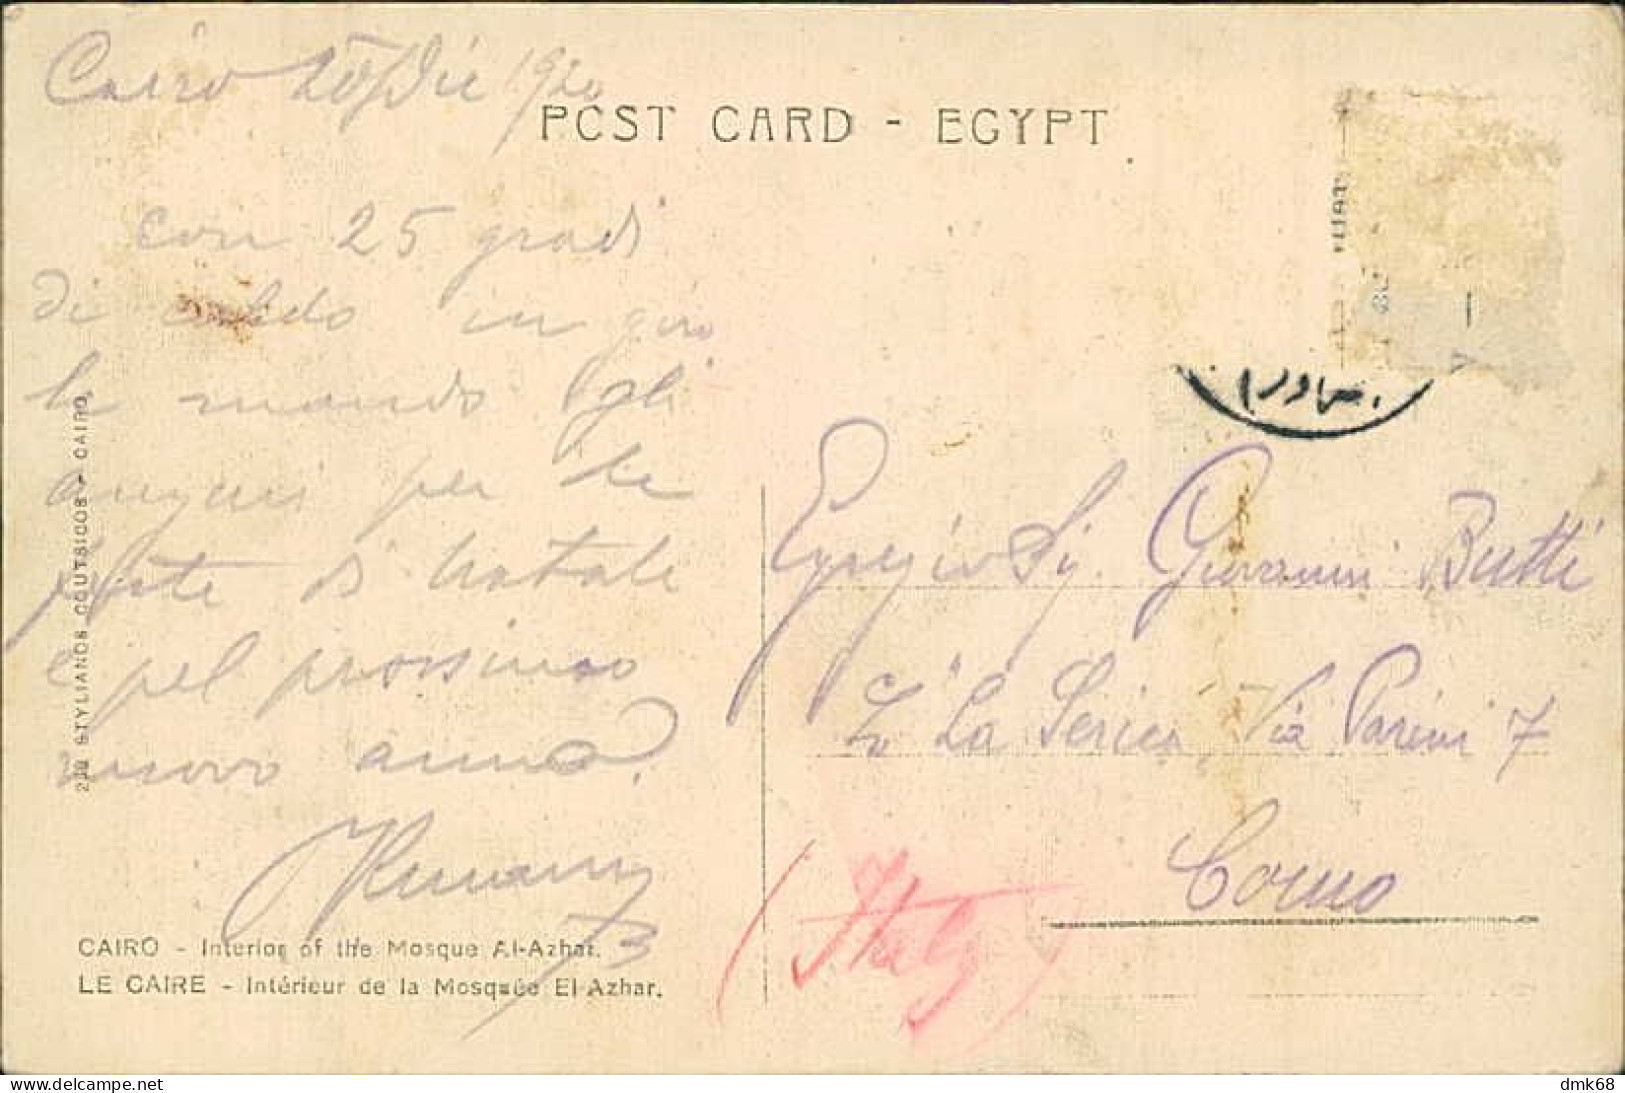 Cairo 20 Dic 1920
POST CARD - EGYPT
con 25 gradi
di caldo in giro
le mando gli
auguri per le
feste di Natale
e pel prossimo
nuovo anno.
Egregio Sig. Giovanni Butti
c/o "La Serica" Via Parini 7
Como
(Italy)
STYLIANOS COUTSICOS - CAIRO
CAIRO - Interior of the Mosque Al-Azhar.
LE CAIRE - Intérieur de la Mosquée El Azhar.
dmk68